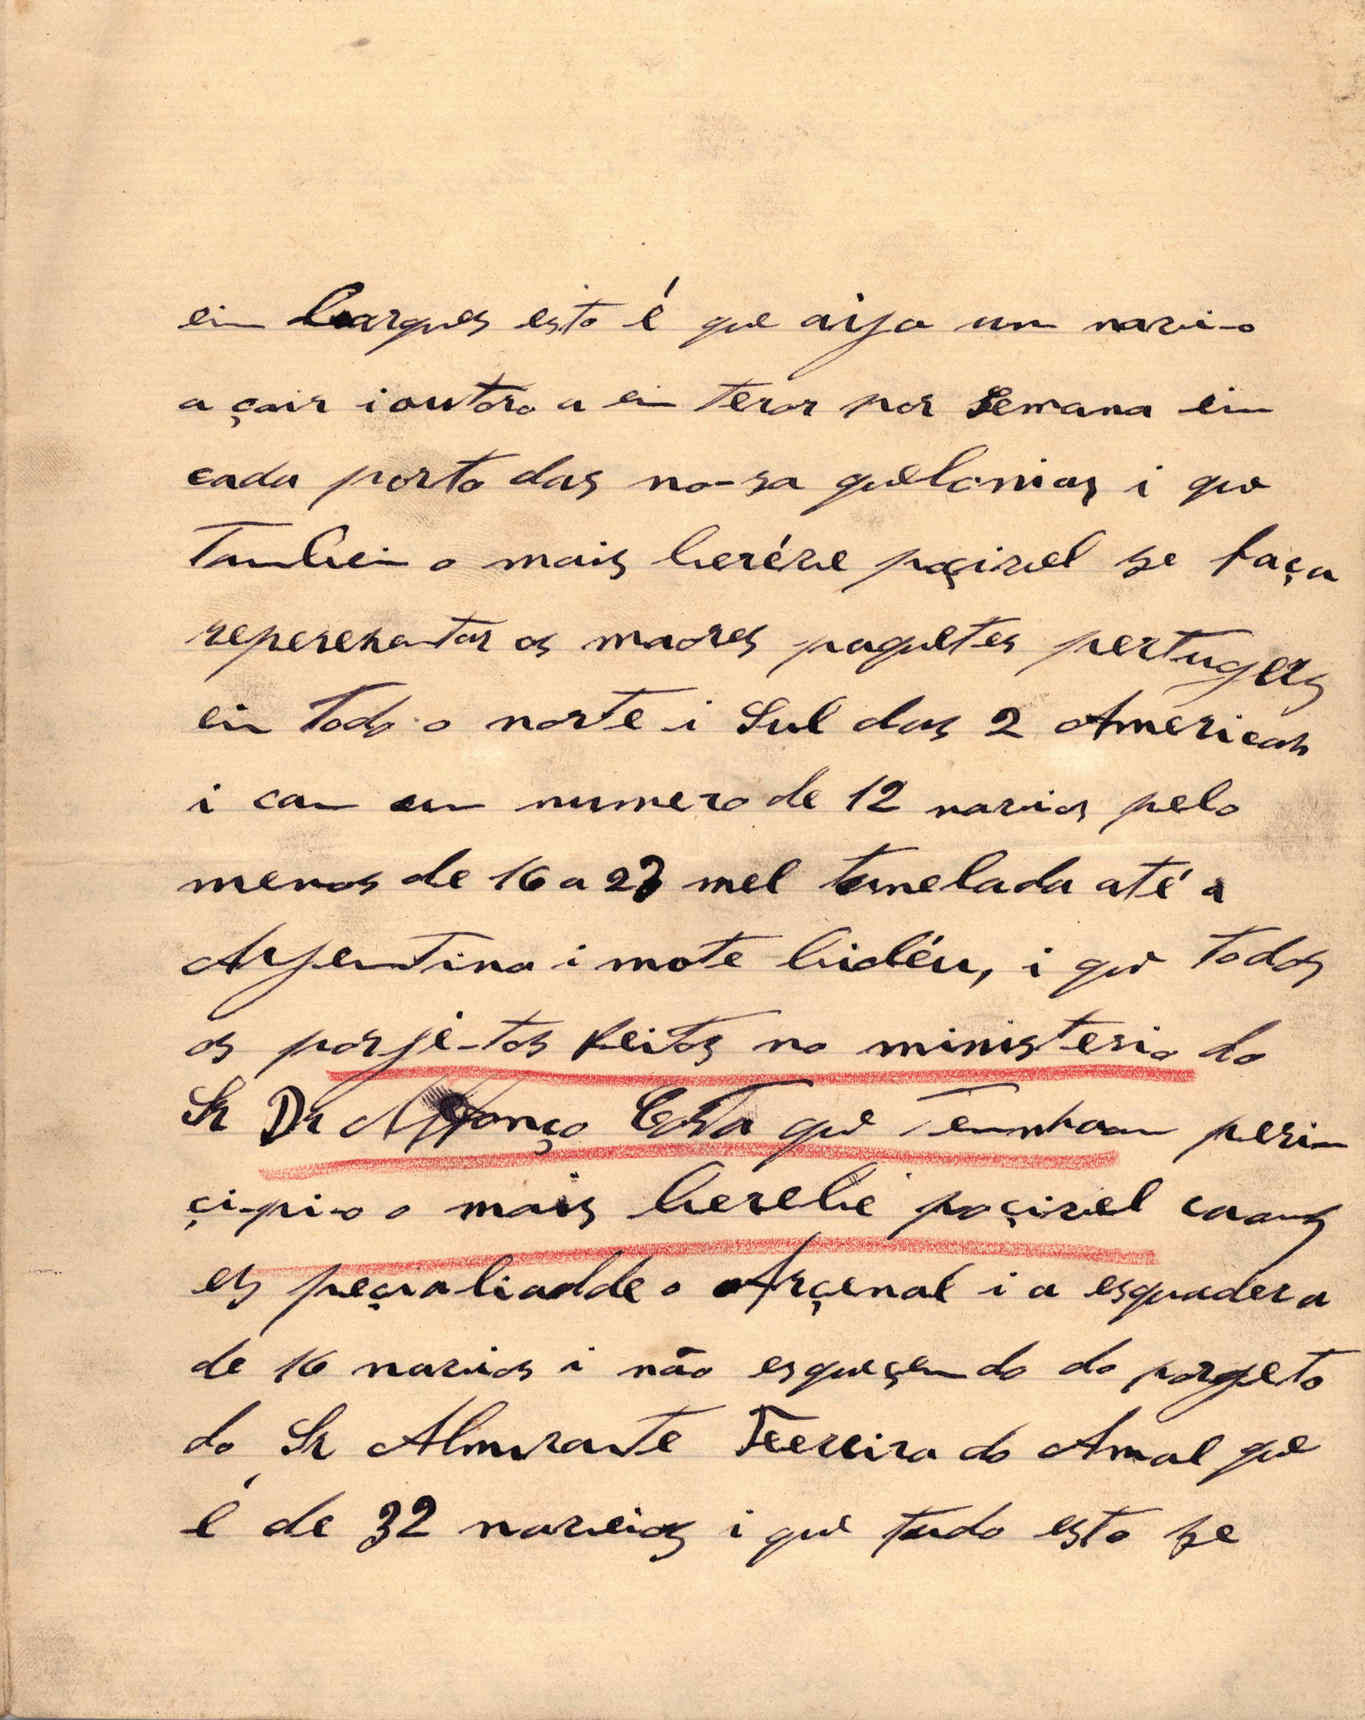 ein barques esto é que aija um navio
a çair i outoro a ein terar por Semana ein
cada porto das no-sa quelonias i que
Tambein o mais beréve poçivel se faça
reperesentar os maores paquetes pertugezes
ein Todo o norte i Sul das 2 Americas
i com um numero de 12 navios pelo
menos de 16 a 23 mel tomelada até a
Argentina i mote bidéu, i que todos
os porjétos feitos no ministerio do
Sr Dr Affonço Costa que Tennham perin
çipio o mais berebe poçivel com
es peçialiadde o Arçenal i a esquadera
de 16 navios i não esqueçendo do porgeto
do Sr Almirante Ferreira do Amal que
é de 32 naveios i que tudo esto se